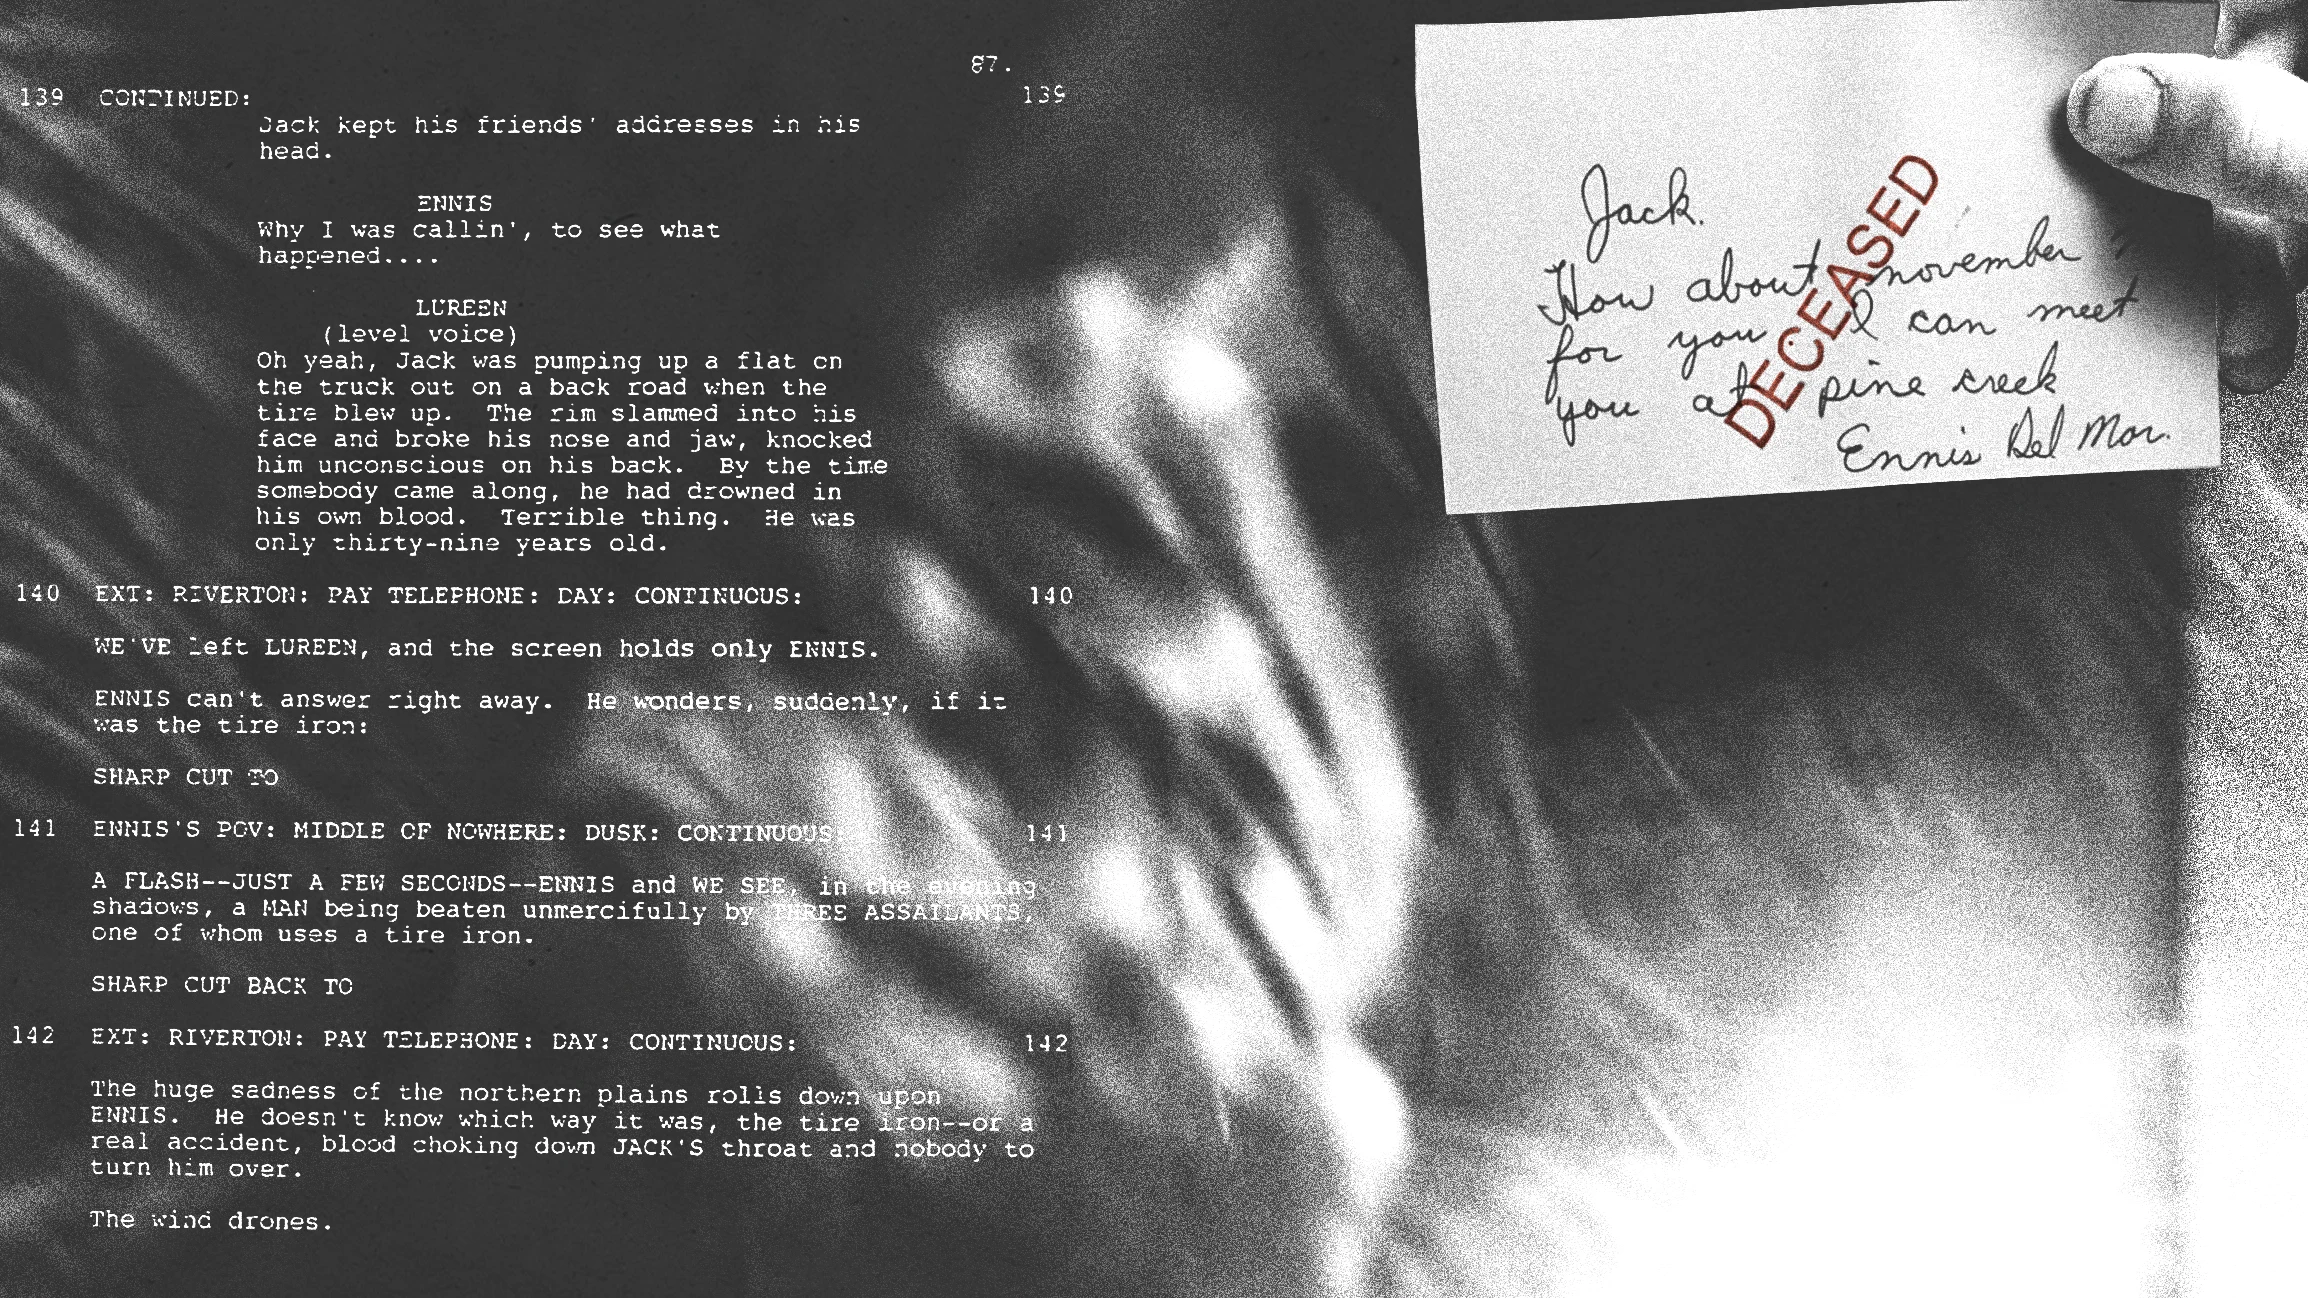 87.
139 CONTINUED: 139
Jack kept his friends' addresses in his
head.
ENNIS
Why I was callin', to see what
happened....
LUREEN
(level voice)
Oh yeah, Jack was pumping up a flat on
the truck out on a back road when the
tire blew up. The rim slammed into his
face and broke his nose and jaw, knocked
him unconscious on his back. By the time
somebody came along, he had drowned in
his own blood. Terrible thing. He was
only thirty-nine years old.
140 EXT: RIVERTON: PAY TELEPHONE: DAY: CONTINUOUS: 140
WE'VE left LUREEN, and the screen holds only ENNIS.
ENNIS can't answer right away. He wonders, suddenly, if it
was the tire iron:
SHARP CUT TO
141 ENNIS'S POV: MIDDLE OF NOWHERE: DUSK: CONTINUOUS: 141
A FLASH--JUST A FEW SECONDS--ENNIS and WE SEE, in the evening
shadows, a MAN being beaten unmercifully by THREE ASSAILANTS,
one of whom uses a tire iron.
SHARP CUT BACK TO
142 EXT: RIVERTON: PAY TELEPHONE: DAY: CONTINUOUS: 142
The huge sadness of the northern plains rolls down upon
ENNIS. He doesn't know which way it was, the tire iron--or a
real accident, blood choking down JACK'S throat and nobody to
turn him over.
The wind drones.
Jack.
How about november
for you I can meet
you at pine creek
Ennis Del Mar.
DECEASED